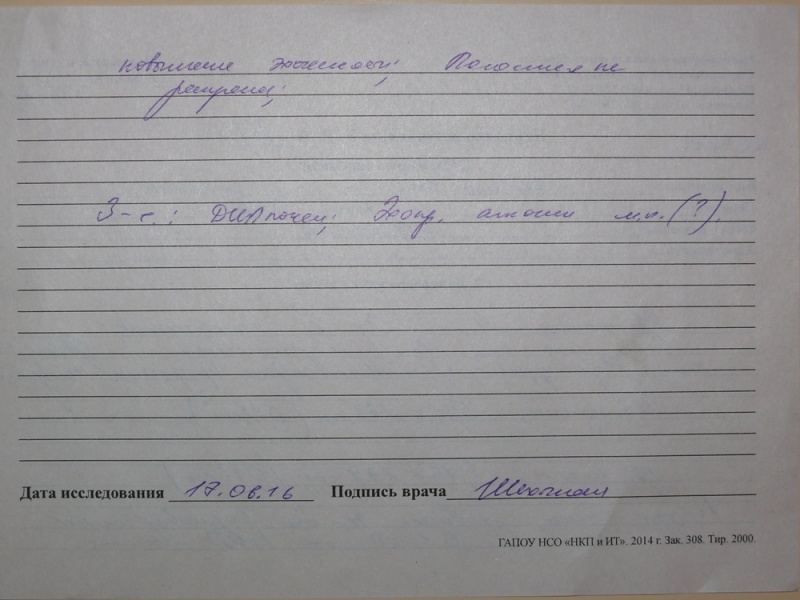 повышение эхогенности; Полостная не
расширена;
З-е: ДИЛ почек; Эхопр. атонии м.п. (?).
Дата исследования 17.06.16 Подпись врача
ГАПОУ НСО «НКП и ИТ». 2014 г. Зак. 308. Тир. 2000.